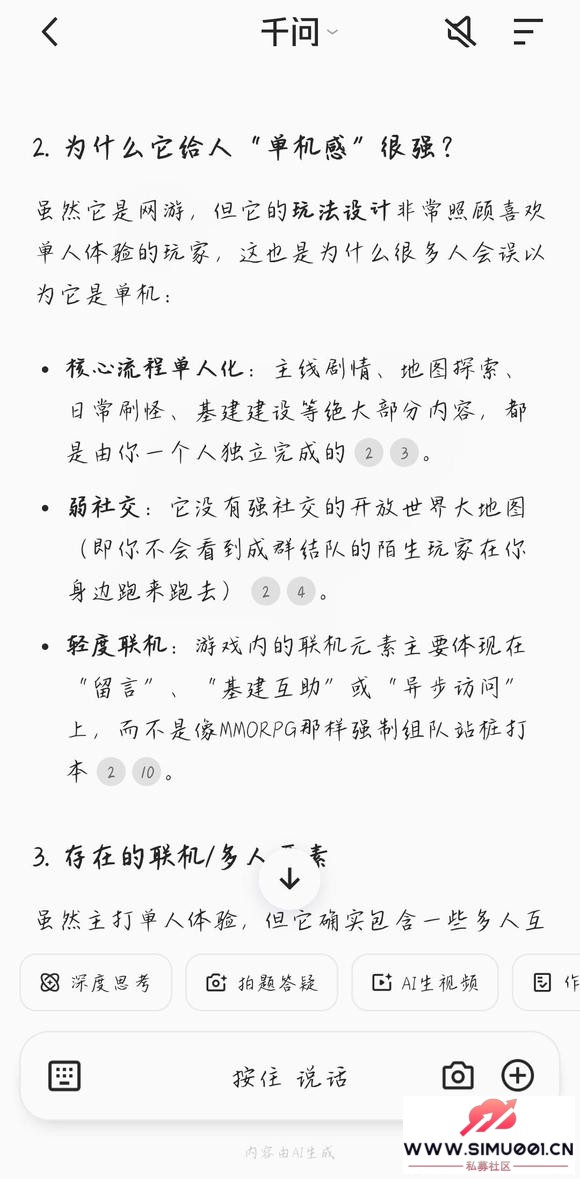 千问
2. 为什么它给人“单机感”很强？
虽然它是网游，但它的玩法设计非常照顾喜欢
单人体验的玩家，这也是为什么很多人会误以
为它是单机：
• 核心流程单人化：主线剧情、地图探索、
日常刷怪、基建建设等绝大部分内容，都
是由你一个人独立完成的 2 3 。
• 弱社交：它没有强社交的开放世界大地图
（即你不会看到成群结队的陌生玩家在你
身边跑来跑去） 2 4 。
• 轻度联机：游戏内的联机元素主要体现在
“留言”、“基建互助”或“异步访问”
上，而不是像MMORPG那样强制组队站桩打
本 2 10 。
3. 存在的联机/多人 素
虽然主打单人体验，但它确实包含一些多人互
深度思考 拍题答疑 AI生视频 作
按住 说话
内容由AI生成
WWW.SIMU001.CN
私募社区